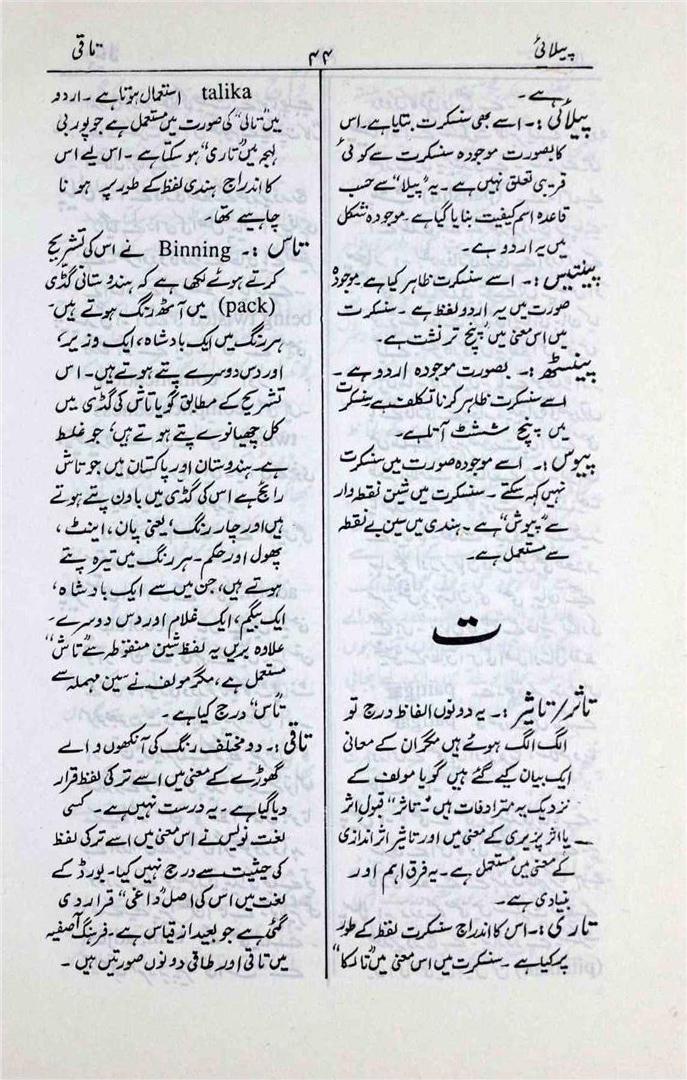 پیلائی
۴۴
تاقی
ہے۔
پیلائی :۔ اسے بھی سنسکرت بتایا ہے۔ اس
کا بصورت موجودہ سنسکرت سے کوئی
قریبی تعلق نہیں ہے۔ یہ ”پیلا“ سے حسب
قاعدہ اسم کیفیت بنایا گیا ہے۔ موجودہ شکل
میں یہ اردو ہے۔
پینتیس :۔ اسے سنسکرت ظاہر کیا ہے موجودہ
صورت میں یہ اردو لفظ ہے۔ سنسکرت
میں اس معنی میں ”پنچ ترنشت ہے۔
پینسٹھ :۔ بصورت موجودہ اردو ہے۔
اسے سنسکرت ظاہر کرنا تکلف ہے سنسکرت
میں پنچ ششٹ آتا ہے۔
پیوس :۔ اسے موجودہ صورت میں سنسکرت
نہیں کہہ سکتے۔ سنسکرت میں شین نقطہ دار
سے ”پیوش“ ہے۔ ہندی میں سین بے نقطہ
سے مستعمل ہے۔
ت
تاثر/تاثیر :۔ یہ دونوں الفاظ درج تو
الگ الگ ہوئے ہیں مگر ان کے معانی
ایک بیان کیے گئے ہیں گویا مولف کے
نزدیک یہ مترادفات ہیں۔ ”تاثر“ قبول اثر
یا اثر پزیری کے معنی میں اور تاثیر اثر اندازی
کے معنی میں مستعمل ہے۔ یہ فرق اہم اور
بنیادی ہے۔
تاری :۔ اس کا اندراج سنسکرت لفظ کے طور
پر کیا ہے۔ سنسکرت میں اس معنی میں ”تالکا“
talika استعمال ہوتا ہے۔ اردو
میں ”تالی“ کی صورت میں مستعمل ہے جو پوربی
لہجہ میں ”تاری“ ہو سکتا ہے۔ اس لیے اس
کا اندراج ہندی لفظ کے طور پر ہونا
چاہیے تھا۔
تاس :۔ Binning نے اس کی تشریح
کرتے ہوئے لکھا ہے کہ ہندوستانی گڈی
(pack) میں آٹھ رنگ ہوتے ہیں۔
ہر رنگ میں ایک بادشاہ، ایک وزیر،
اور دس دوسرے پتے ہوتے ہیں۔ اس
تشریح کے مطابق گویا تاش کی گڈی میں
کل چھیانوے پتے ہوتے ہیں، جو غلط
ہے۔ ہندوستان اور پاکستان میں جو تاش
رائج ہے اس کی گڈی میں باون پتے ہوتے
ہیں اور چار رنگ، یعنی پان، اینٹ،
پھول اور حکم۔ ہر رنگ میں تیرہ پتے
ہوتے ہیں، جن میں سے ایک بادشاہ،
ایک بیگم، ایک غلام اور دس دوسرے۔
علاوہ بریں یہ لفظ شین منقوطہ سے ”تاش“
مستعمل ہے، مگر مولف نے سین مہملہ سے
”تاس“ درج کیا ہے۔
تاقی :۔ دو مختلف رنگ کی آنکھوں والے
گھوڑے کے معنی میں اسے ترکی لفظ قرار
دیا گیا ہے۔ یہ درست نہیں ہے۔ کسی
لغت نویس نے اس معنی میں اسے ترکی لفظ
کی حیثیت سے درج نہیں کیا۔ بورڈ کے
لغت میں اس کی اصل ”داغی“ قرار دی
گئی ہے جو بعید از قیاس ہے۔ فرہنگ آصفیہ
میں تاقی اور طاقی دونوں صورتیں ہیں۔